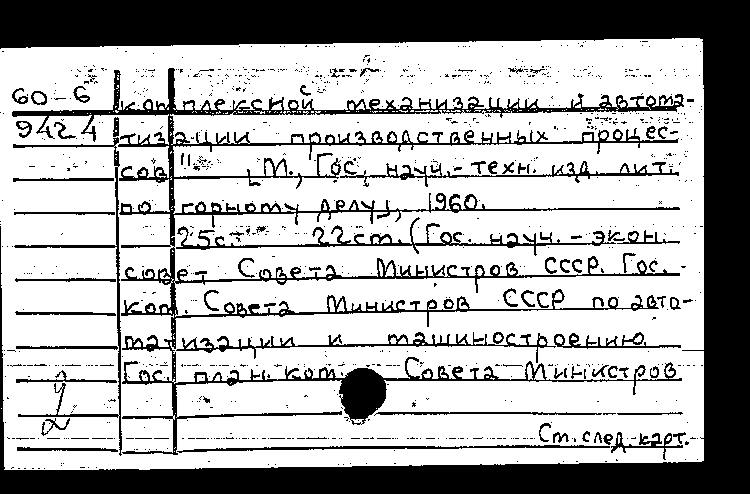 2
60-6 комплексной механизации и автома-
942 4 тизации производственных процес-
сов". [М., Гос. науч.-техн. изд. лит.
по горному делу], 1960.
25с. 22см. (Гос. науч.-экон.
совет Совета Министров СССР. Гос.
ком. Совета Министров СССР по авто-
матизации и машиностроению.
Гос. план. ком. Совета Министров
2
См. след. карт.